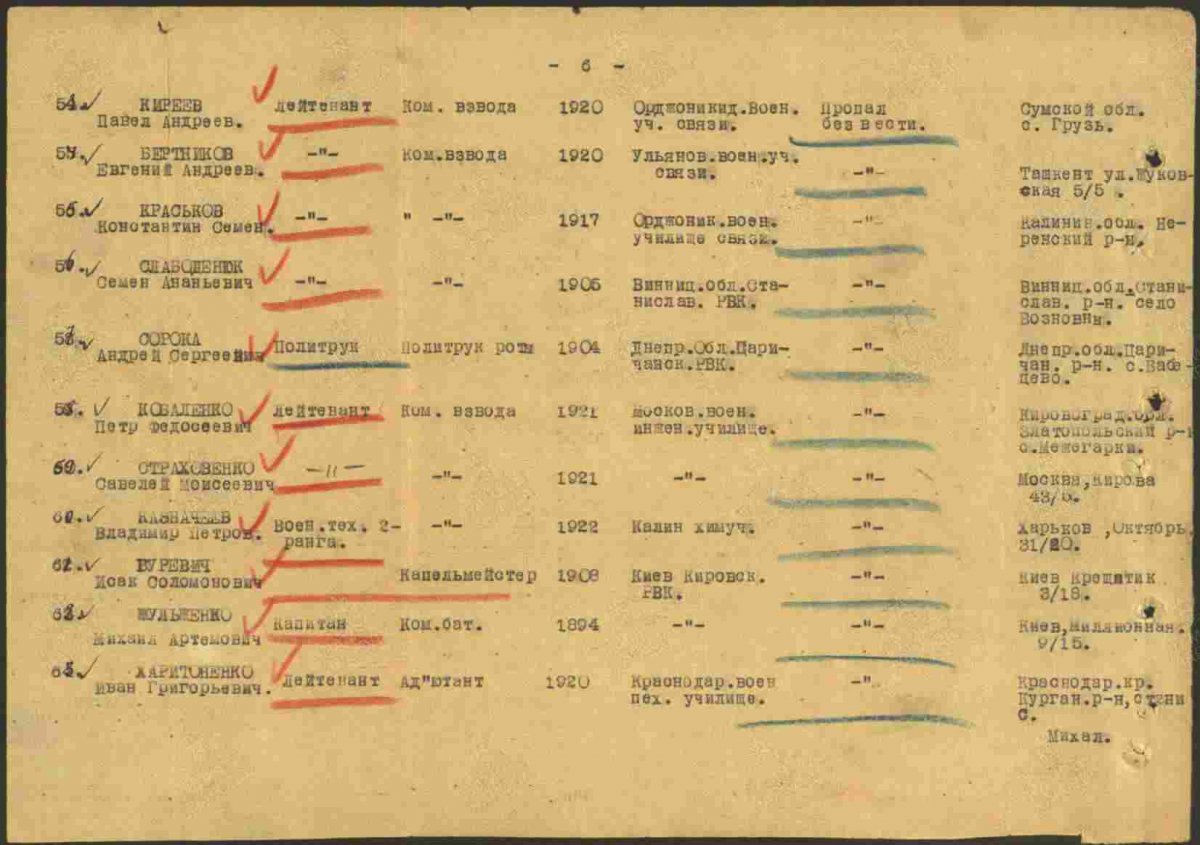 - 6 -
54. КИРЕЕВ Лейтенант Ком. взвода 1920 Орджоникид.Воен. Пропал Сумской обл.
Павел Андреев. уч. связи. без вести. с. Грузь.
БЕРТНИКОВ -"- Ком.взвода 1920 Ульянов.воен.уч. -"-
Евгений Андреев. связи. Ташкент ул.Жуков-
ская 5/5 .
КРАСЬКОВ -"- " -"- 1917 Орджоник.воен. -"- Калинин.обл. Не-
Константин Семен. училище связи. ренский р-н.
СЛАБОДЕНЮК -"- -"- 1905 Винниц.обл.Ста- -"- Винниц.обл.Стани-
Семен Ананьевич нислав. РВК. слав. р-н. село
Возновны.
СОРОКА Политрук Политрук роты 1904 Днепр.Обл.Цари- -"- Днепр.обл.Цари-
Андрей Сергеевич чанск.РВК. чан. р-н. с.Бабе-
цево.
КОВАЛЕНКО Лейтенант Ком. взвода 1921 Москов.воен. -"- Кировоград.обл.
Петр Федосеевич инжен.училище. Златопольский р-н
с.Межегарки.
СТРАХОВЕНКО -"- -"- 1921 -"- -"- Москва,Кирова
Савелей Моисеевич 43/
КАЗНАЧЕЕВ Воен.тех. 2- -"- 1922 Калин химуч. -"- Харьков ,Октябрь.
Владимир Петров. ранга. 31/20.
ВУРЕВИЧ Капельмейстер 1908 Киев Кировск. -"- Киев Крещатик
Исак Соломонович РВК. 3/18.
ШУЛЬЖЕНКО Капитан Ком.бат. 1894 -"- -"- Киев,Милионная.
Михаил Артемович 9/15.
ХАРИТОНЕНКО Лейтенант Ад"ютант 1920 Краснодар.воен -"- Краснодар.кр.
Иван Григорьевич. пех. училище. Курган.р-н,стани
с.
Михал.